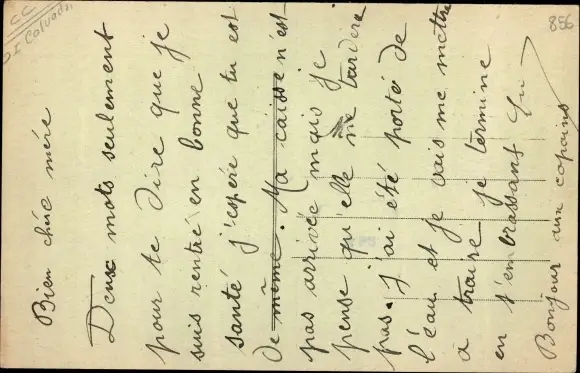 Bien chér mère
Deux mots seulement
pour te dire que je
suis rentré en bonne
santé j'espére que tu est
de même. Ma caisse n'est
pas arrivée mais je
pense qu'elle ne tardera
pas. j'ai été porté de
l'eau et je vais me mettre
a traire je termine
en t'embrassant
Bonjour aux copains
CC
Calvados
856